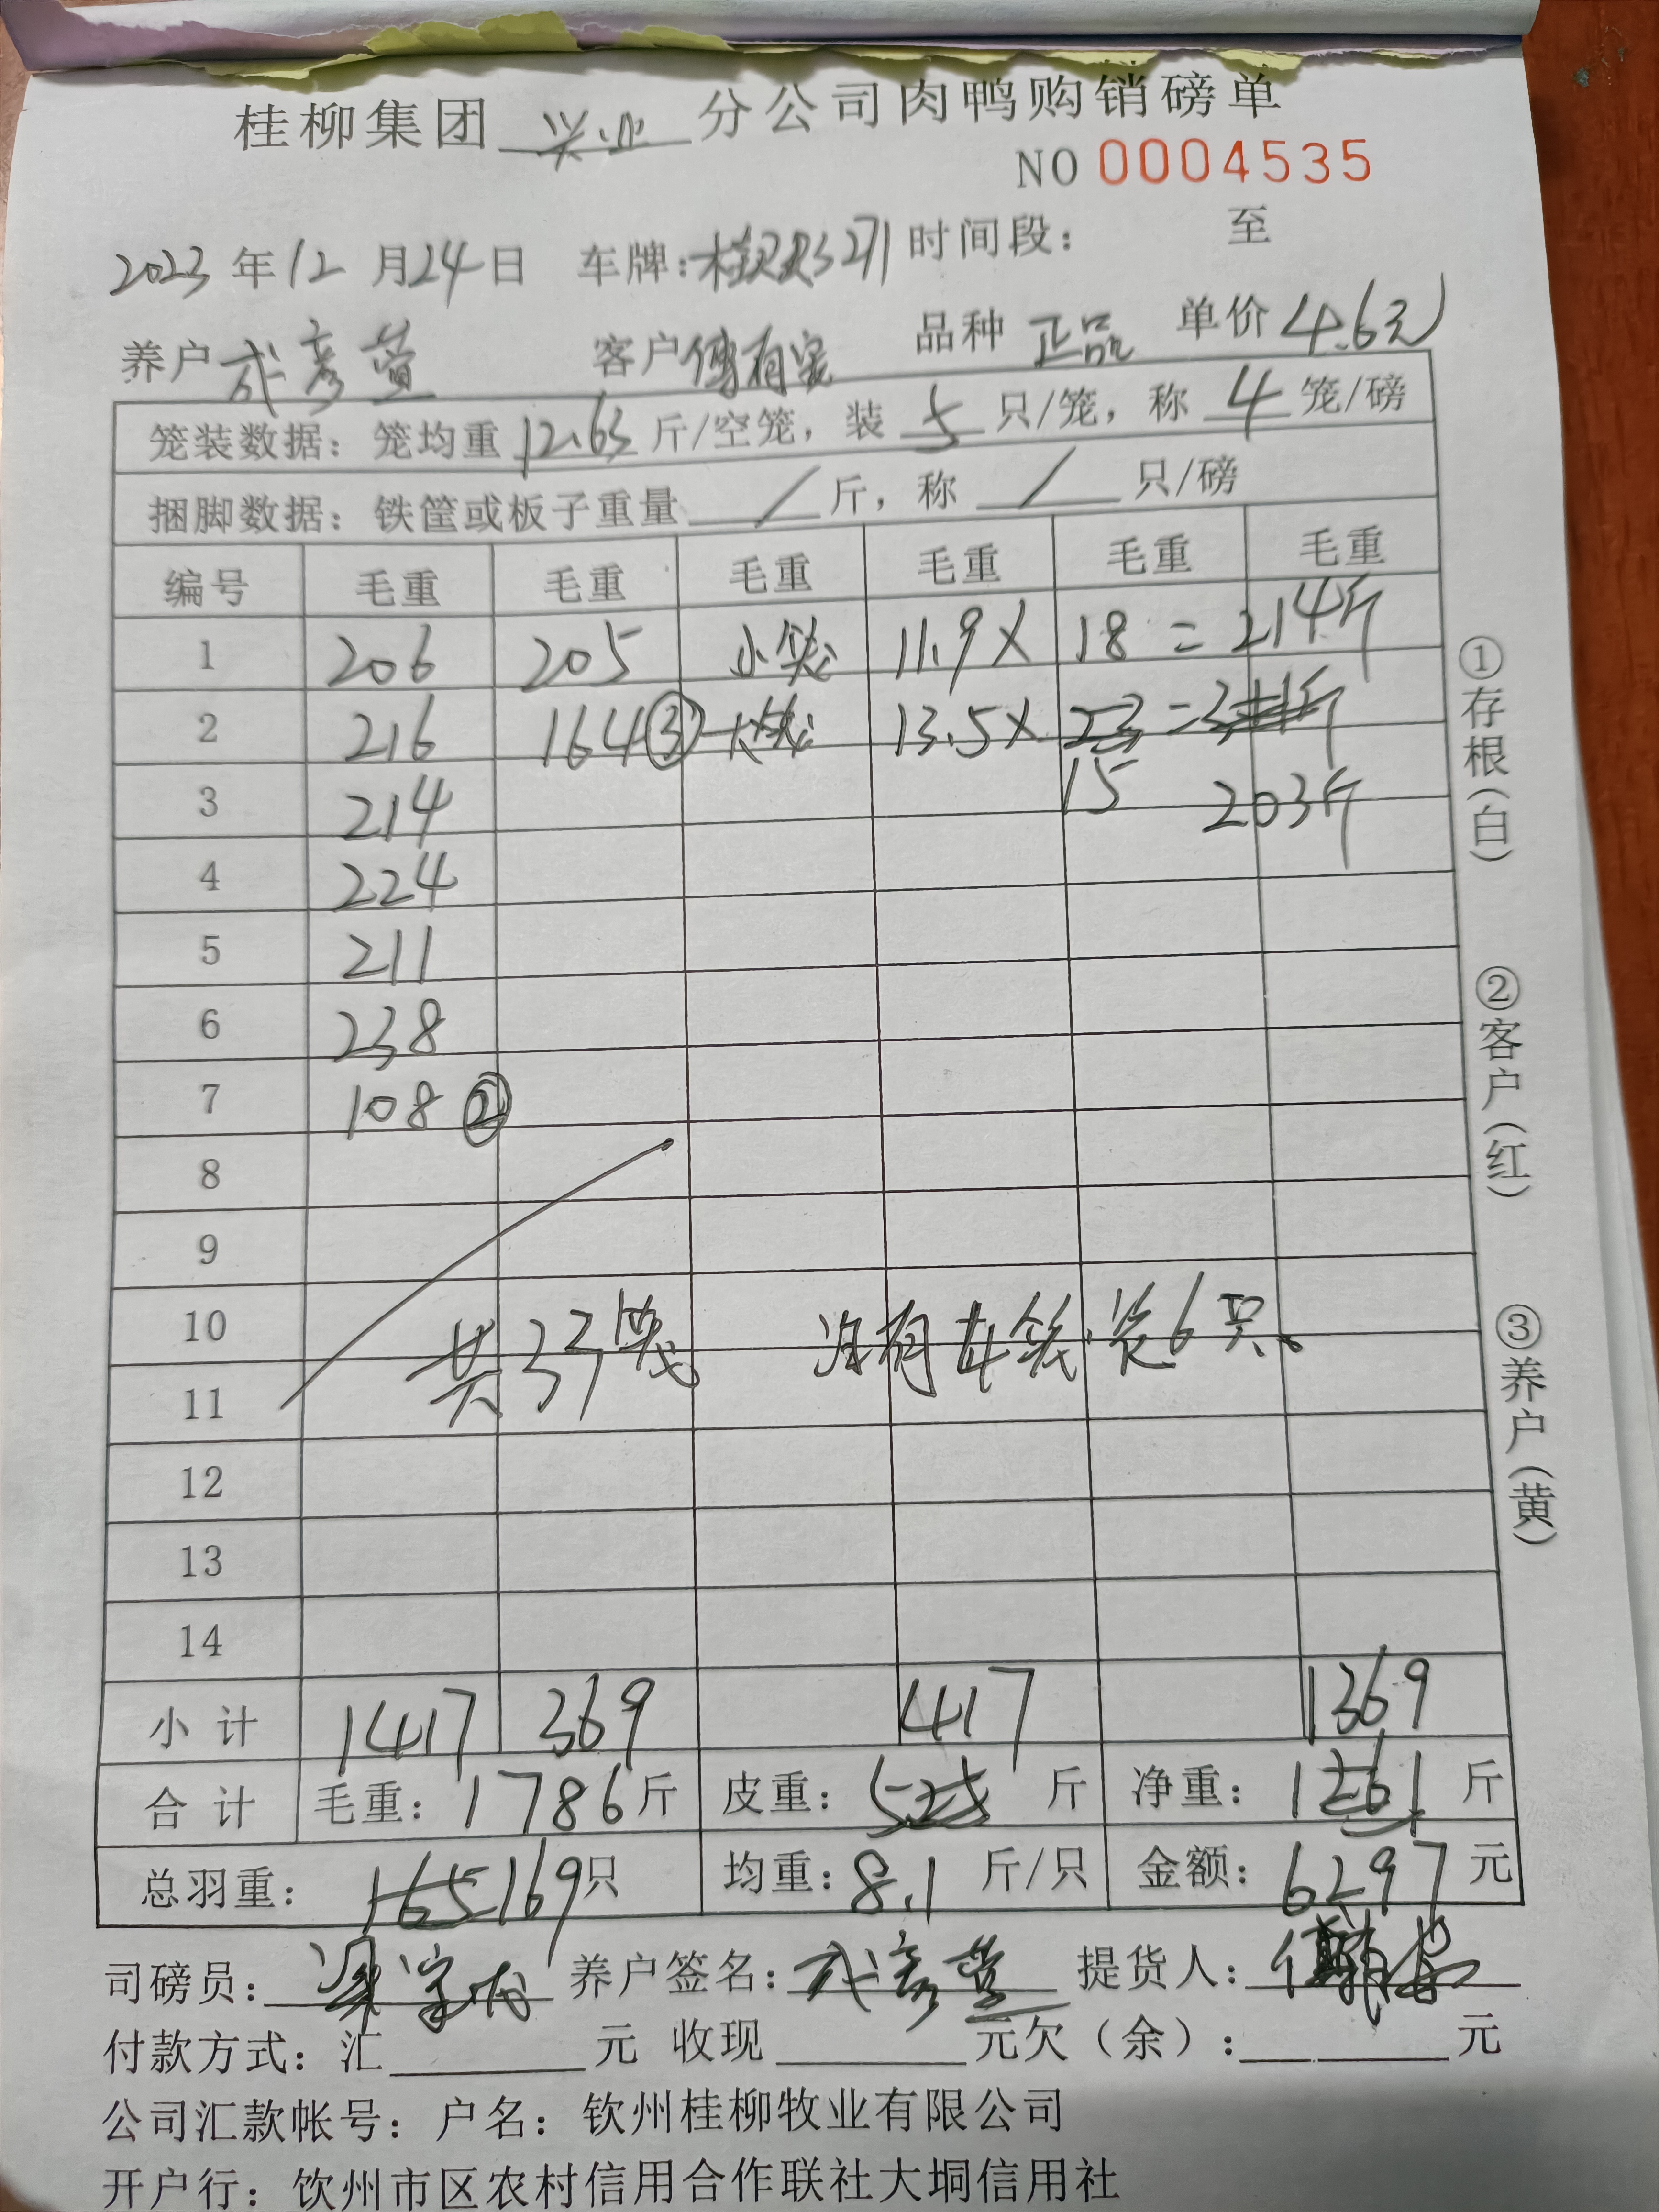 桂柳集团 兴业 分公司肉鸭购销磅单
NO 0004535
2023 年 12 月 24 日 车牌: 271 时间段: 至
养户 成彦萱 客户 傅有 品种 正品 单价 4.6元
笼装数据: 笼均重 12.63 斤/空笼, 装 5 只/笼, 称 4 笼/磅
捆脚数据: 铁筐或板子重量 / 斤, 称 / 只/磅
编号 毛重 毛重 毛重 毛重 毛重 毛重
1 206 205 小笼 11.9 × 18 = 214斤
2 216 164③ 大笼 13.5 × 23 = 斤
3 214 15 203斤
4 224
5 211
6 238
7 108②
8
9
10
共33笼 没有在笼装6只。
11
12
13
14
小 计 1417 369 417 1369
合 计 毛重: 1786 斤 皮重: 525 斤 净重: 1261 斤
总羽重: 165 169只 均重: 8.1 斤/只 金额: 6297 元
司磅员: 梁 养户签名: 成彦萱 提货人: 傅
付款方式: 汇 元 收现 元欠(余): 元
公司汇款帐号: 户名: 钦州桂柳牧业有限公司
开户行: 饮州市区农村信用合作联社大垌信用社
①存根(白)
②客户(红)
③养户(黄)